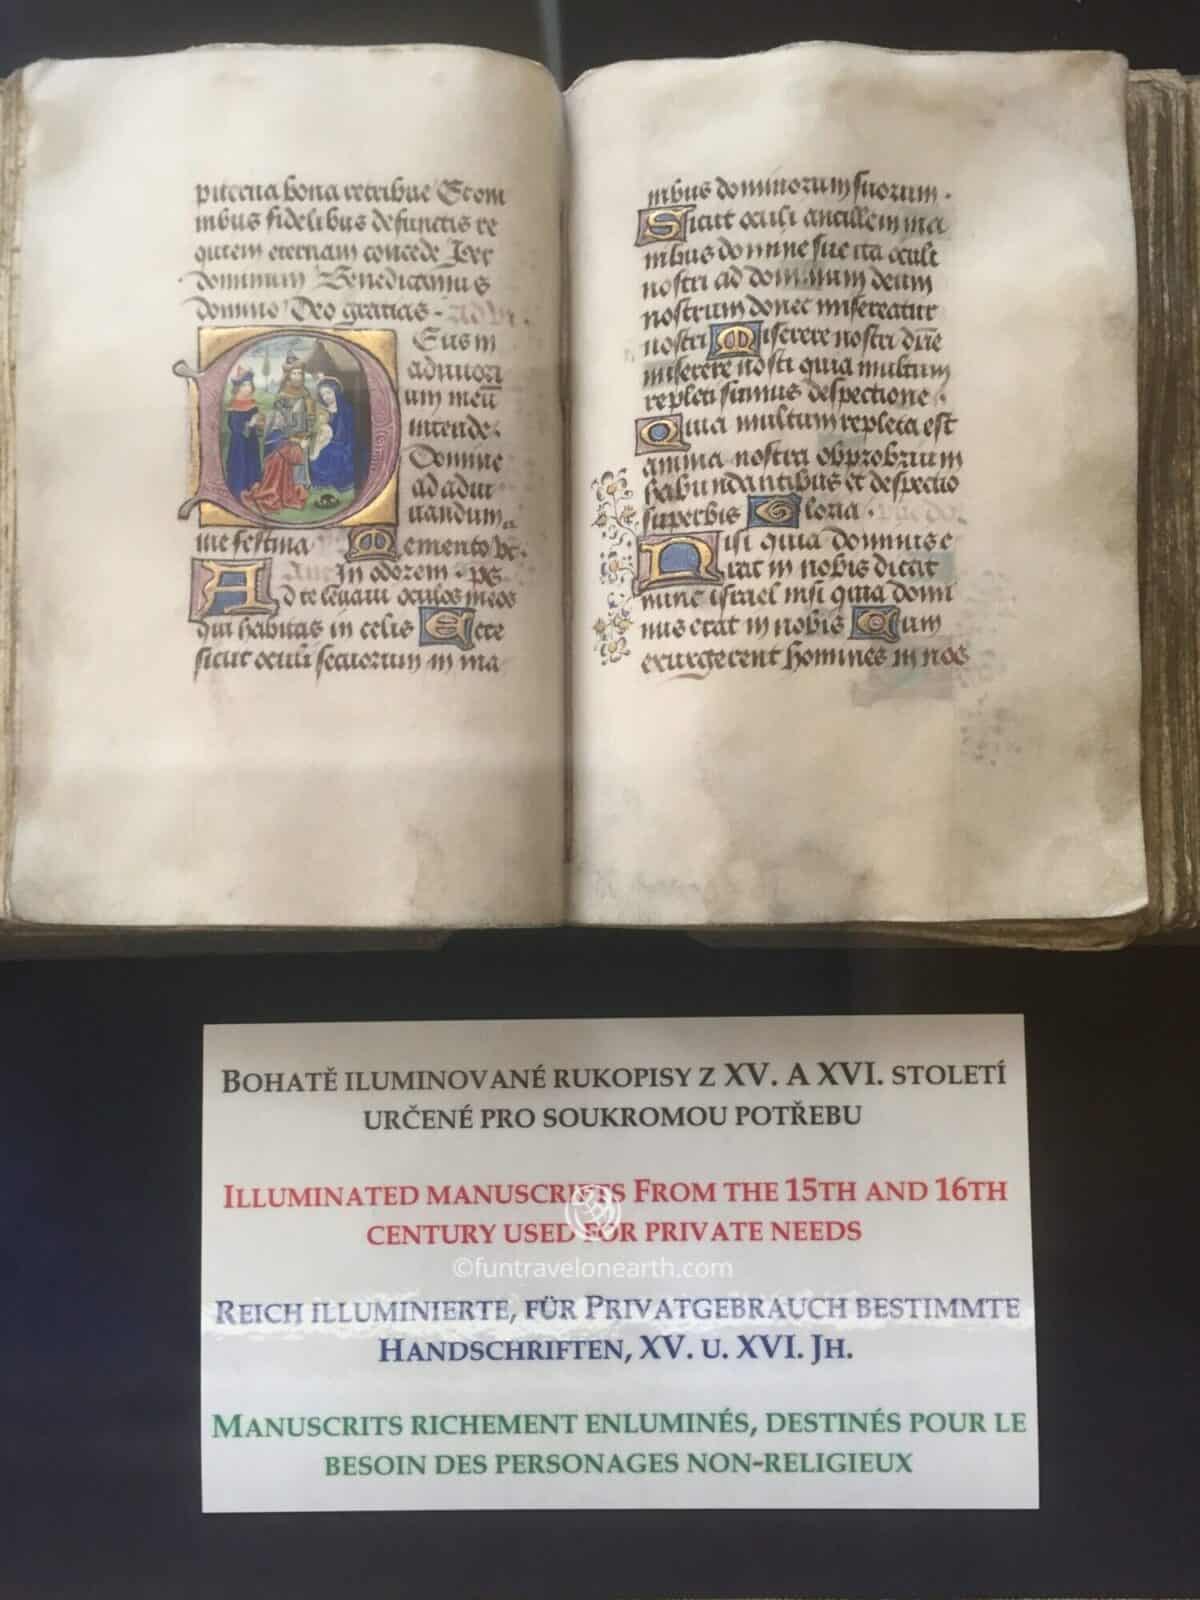 piterna bona retribue Et om
nibus fidelibus defunctis re
quiem eternam concede Per
dominum Benedicamus
domino Deo gratias
Deus in
adiutori
um meū
intende
Domine
ad adiu
uandum
me festina Memento
In odorem ps
Ad te leuaui oculos meos
qui habitas in celis Ecce
sicut oculi seruorum in ma
nibus dominorum suorum
Sicut oculi ancille in ma
nibus domine sue ita oculi
nostri ad dominum deum
nostrum donec misereatur
nostri Miserere nostri dn̄e
miserere nostri quia multum
repleti sumus despectione
Quia multum repleta est
anima nostra obprobrium
habundantibus et despectio
superbis Gloria
Nisi quia dominus e
rat in nobis dicat
nunc israel nisi quia domi
nus erat in nobis Cum
exurgerent homines in nos
BOHATĚ ILUMINOVANÉ RUKOPISY Z XV. A XVI. STOLETÍ
URČENÉ PRO SOUKROMOU POTŘEBU
ILLUMINATED MANUSCRIPTS FROM THE 15TH AND 16TH
CENTURY USED FOR PRIVATE NEEDS
©funtravelonearth.com
REICH ILLUMINIERTE, FÜR PRIVATGEBRAUCH BESTIMMTE
HANDSCHRIFTEN, XV. U. XVI. JH.
MANUSCRITS RICHEMENT ENLUMINÉS, DESTINÉS POUR LE
BESOIN DES PERSONAGES NON-RELIGIEUX